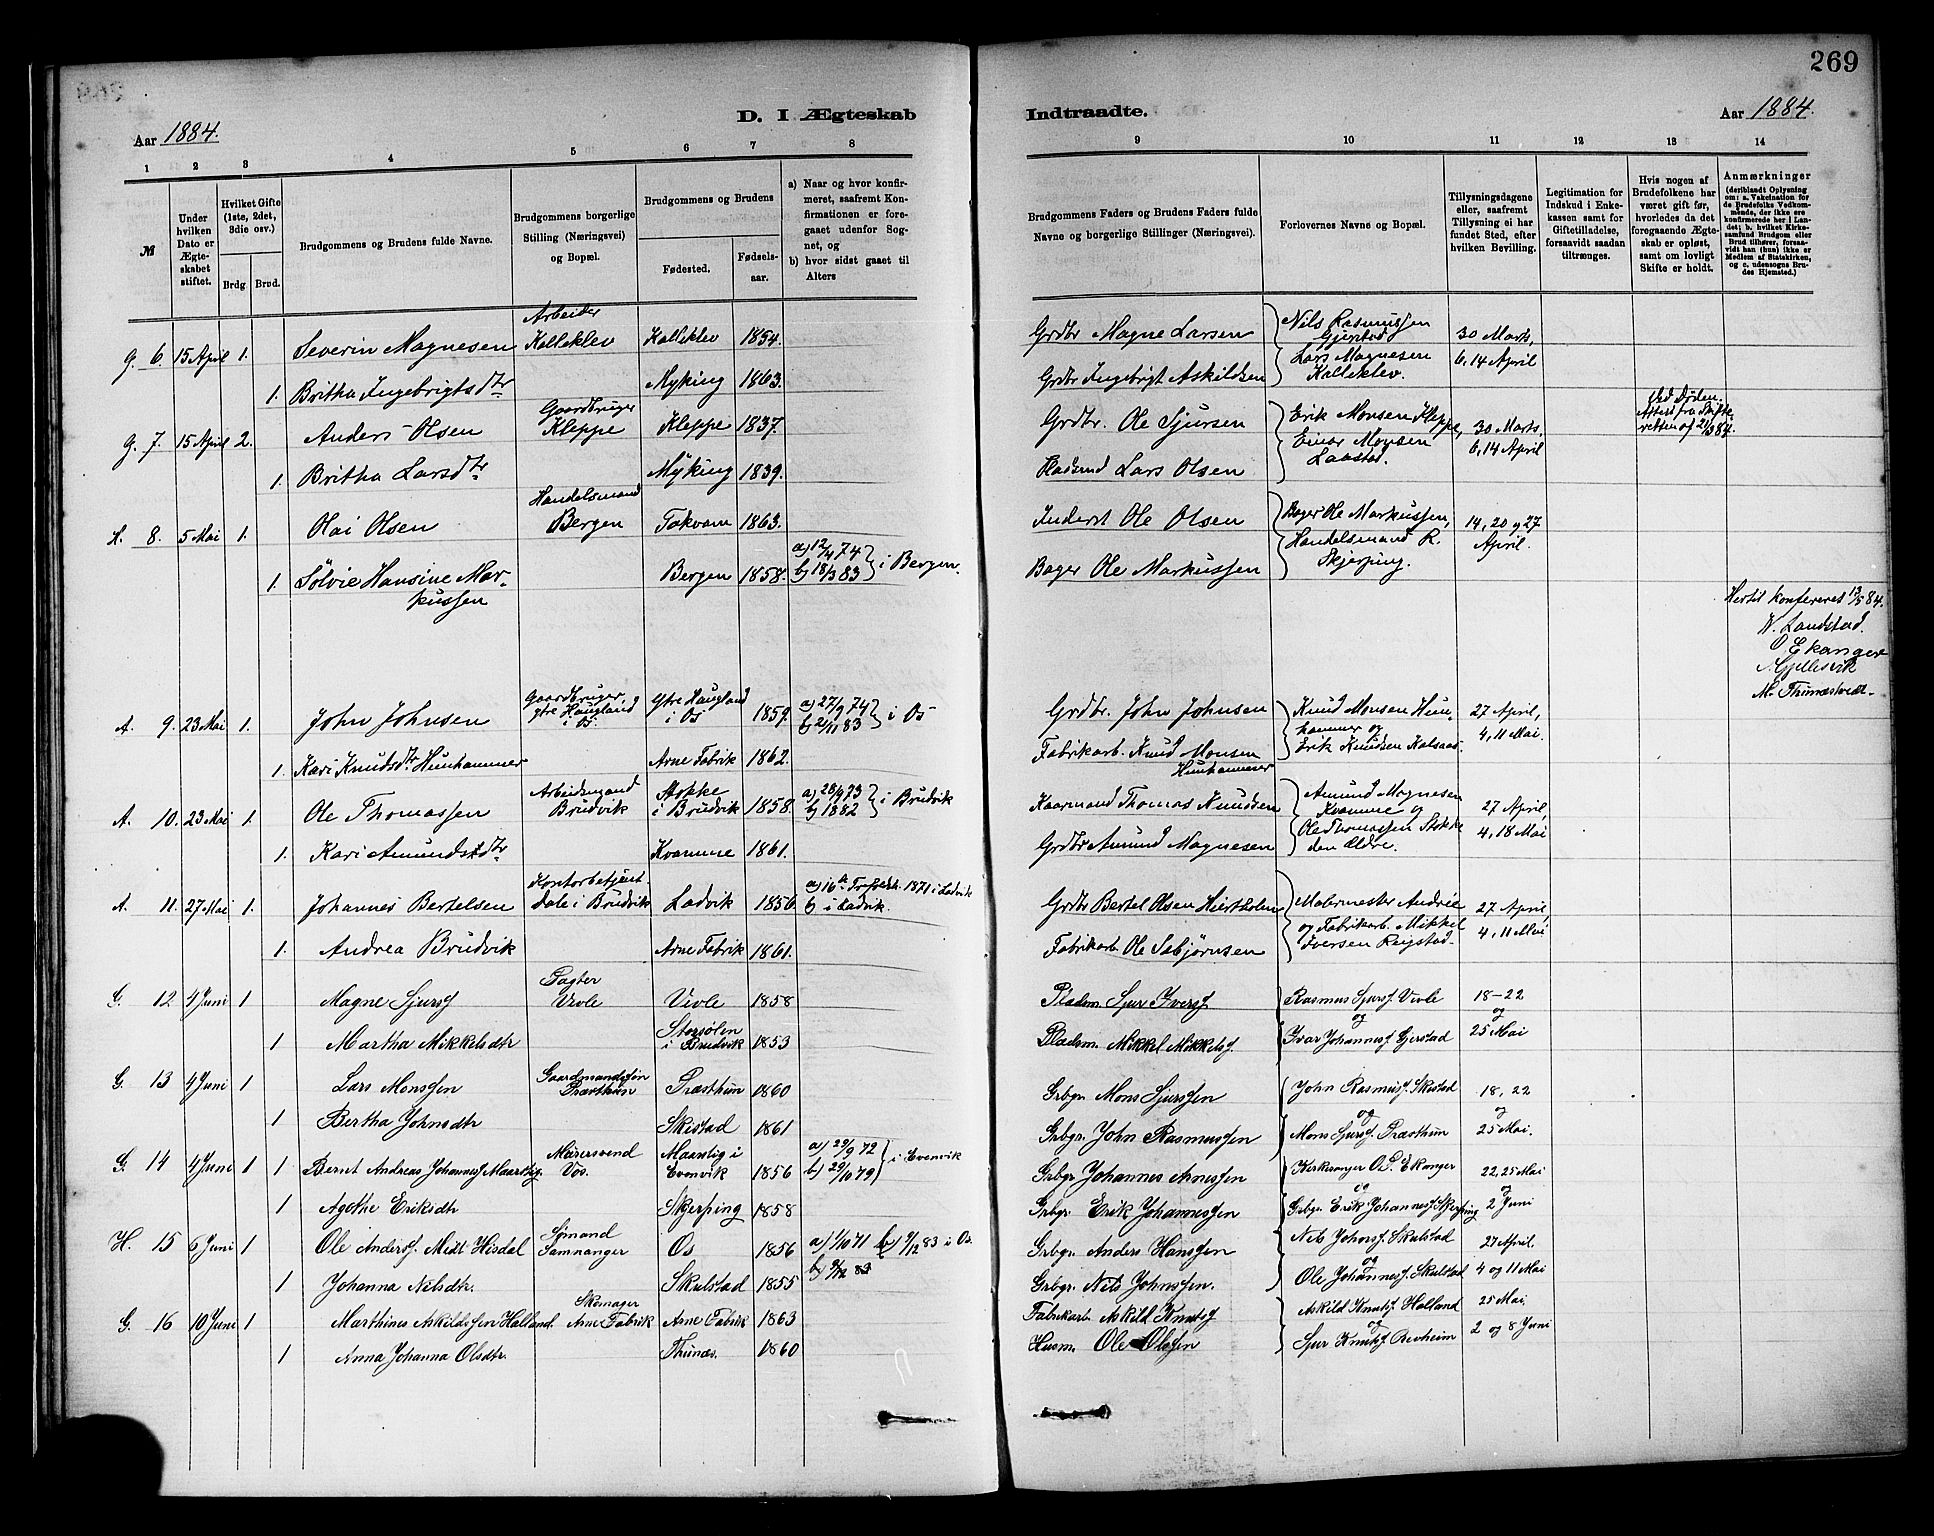 269
Aar 1884.
D. I Ægteskab
Indtraadte.
Aar 1884.
1 2 3 4 5 6 7 8
9 10 11 12 13 14
№
Under hvilken Dato er Ægteskabet stiftet.
Hvilket Gifte (1ste, 2det, 3die osv.)
Brdg. Brud.
Brudgommens og Brudens fulde Navne.
Brudgommens borgerlige Stilling (Næringsvei) og Bopæl.
Brudgommens og Brudens
Fødested.
Fødselsaar.
a) Naar og hvor konfirmeret, saafremt Konfirmationen er foregaaet udenfor Sognet, og
b) hvor sidst gaaet til Alters
Brudgommens Faders og Brudens Faders fulde Navne og borgerlige Stillinger (Næringsvei).
Forlovernes Navne og Bopæl.
Tillysningsdagene eller, saafremt Tillysning ei har fundet Sted, efter hvilken Bevilling.
Legitimation for Indskud i Enkekassen samt for Giftetilladelse, forsaavidt saadan tiltrænges.
Hvis nogen af Brudefolkene har været gift før, hvorledes da det foregaaende Ægteskab er opløst, samt om lovligt Skifte er holdt.
Anmærkninger (deriblandt Oplysning om: a. Vakcination for de Brudefolks Vedkommende, der ikke ere konfirmerede her i Landet; b. hvilket Kirkesamfund Brudgom eller Brud tilhører, forsaavidt han (hun) ikke er Medlem af Statskirken, og c. udensogns Brudes Hjemsted.)
G. 6. 15 April 1. Severin Magnesen Arbeider Kalleklev Kalleklev 1854. Grdbr Magne Larsen Nils Rasmussen Gjerstad 30 Marts,
1. Britha Ingebrigtsdtr Myking 1863. Grdbr Ingebrigt Askildsen Lars Magnesen Kalleklev. 6, 14 April
G. 7. 15 April 2. Anders Olsen Gaardbruger Kleppe Kleppe 1837. Grdbr. Ole Sjursen Erik Monsen Kleppe, 30 Marts, ved Døden. Attest fra Skifteretten af 21/3 84.
1. Britha Larsdtr Myking 1839. Lars Olsen Einar Monsen Laastad. 6, 14 April
H. 8. 5 Mai 1. Olai Olsen Handelsmand Bergen Takvam 1863. Inderst Ole Olsen Bager Ole Markussen, 14, 20 og 27
1. Sølvie Hansine Markussen Bergen 1858. a) 12/4 74 b) 18/3 83 } i Bergen. Bager Ole Markussen Handelsmand R. Skjerping. April.
Hertil konfereret 13/5 84.
N. Landstad.
O Ekanger
A Gjellesvik
M. Thunestvedt.
A. 9. 23 Mai 1. John Johnsen Gaardbruger, ytre Haugland i Os. Ytre Haugland i Os 1859. a) 27/9 74 b) 21/11 83 } i Os Grdbr. John Johnsen Knud Monsen Hunhammer og 27 April,
1. Kari Knudsdtr. Hunhammer Arne Fabrik 1862. Fabrikarb. Knud Monsen Hunhammer Erik Knudsen Kalsaas. 4, 11 Mai.
A. 10. 23 Mai 1. Ole Thomassen Arbeidsmand Brudvik Stokke i Brudvik 1858. a) 28/9 73 b) 1882 } i Brudvik Kaarmand Thomas Knudsen Amund Magnesen Kvamme og 27 April,
1. Kari Amundsdtr Kvamme 1861. Grdbr Amund Magnesen Ole Thomassen Stokke den Ældre. 4, 18 Mai
A. 11. 27 Mai 1. Johannes Bertelsen Kontorbetjent Dale i Brudvik Ladvik 1856. a) 16de 1871 i Ladvik b) i Ladvik. Grdbr Bertel Olsen Malermester Andvie 27 April,
1. Andrea Brudvik Arne Fabrik 1861. Fabrikarb Ole Sabjørnsen og Fabrikarb. Mikkel Iversen Reigstad. 4, 11 Mai
G. 12 4 Juni 1 Magne Sjursf Pagter Vevle Vevle 1858 Pladsm. Sjur Iversf. Rasmus Sjursf. Vevle 18-22
1 Martha Mikkelsdtr Storsølen i Brudvik 1853 Pladsm. Mikkel Mikkelsf. og Ivar Johannesf Gjerstad og 25 Mai
G. 13 4 Juni 1 Lars Monssen Gaardmandssøn Præsthun Præsthun 1860 Grbgr. Mons Sjurssen John Rasmusf Skistad 18, 22
1 Bertha Johnsdtr Skistad 1861 Grbgr. John Rasmussen og Mons Sjursf. Præsthun og 25 Mai.
G. 14 4 Juni 1 1 Bernt Andreas Johannesf Maarstig Murersvend Vos. Maarstig i Evenvik 1856 a) 29/9 72 b) 29/10 79 } i Evenvik Grbgr Johannes Arnessen Kirkesanger O. Ekanger 22, 25 Mai
1 Agethe Eriksdtr Skjerping 1858 Grbgr. Erik Johannessen og Grbgr. Erik Johannesf Skjerping og 2 Juni
H. 15 6 Juni 1 Ole Andersf. Midt Hisdal Sømand Samnanger Os 1856 a) 1/10 71 b) 9/12 83 i Os. Grbgr. Anders Hanssen Nils Johnsf Skulstad 27 April.
1 Johanna Nilsdtr. Skulstad 1855 b) 9/12 83 Grbgr. Nils Johnssen. og Ole Johannesf. Skulstad 4 og 11 Mai
G. 16 10 Juni 1 Marthinus Askildssen Halland. Skomager Arne Fabrik Arne Fabrik 1863 Fabrikarb. Askild Knutsf Askild Knutsf. Halland 25 Mai,
1 Anna Johanna Olsdtr. Thunæs. 1860 Husm. Ole Olssen og Sjur Knutsf Revheim 2 og 8 Juni